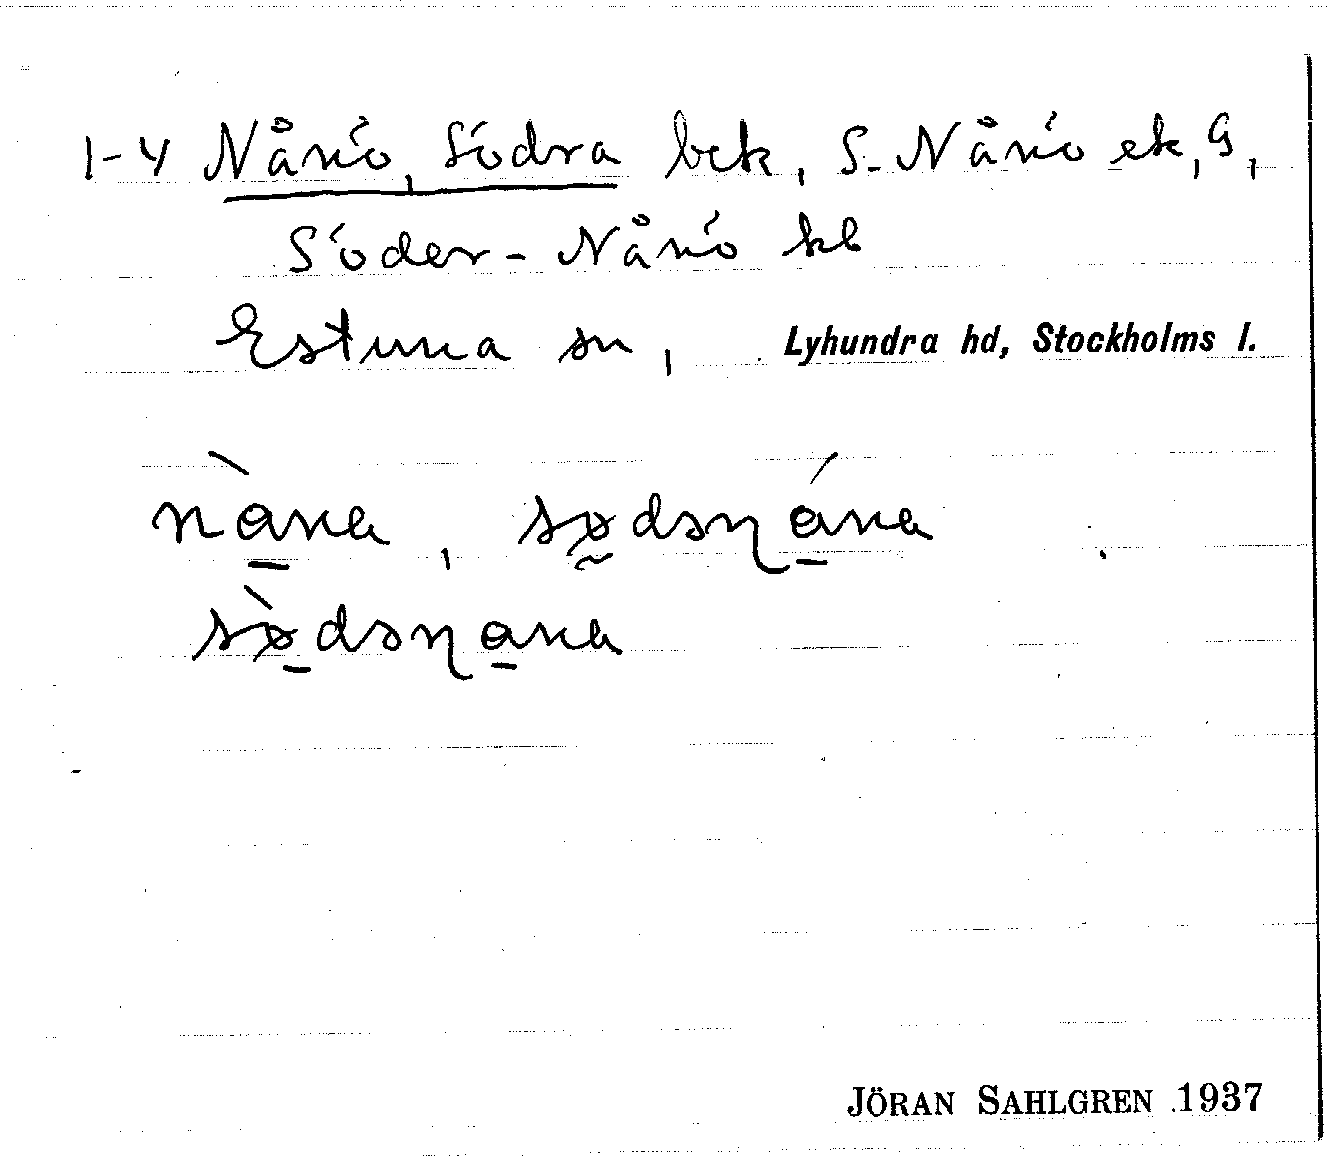 1-4 Nånö, Södra bek, S. Nånö ek, G,
Söder-Nånö kl
Estuna sn, Lyhundra hd, Stockholms l.
JÖRAN SAHLGREN 1937